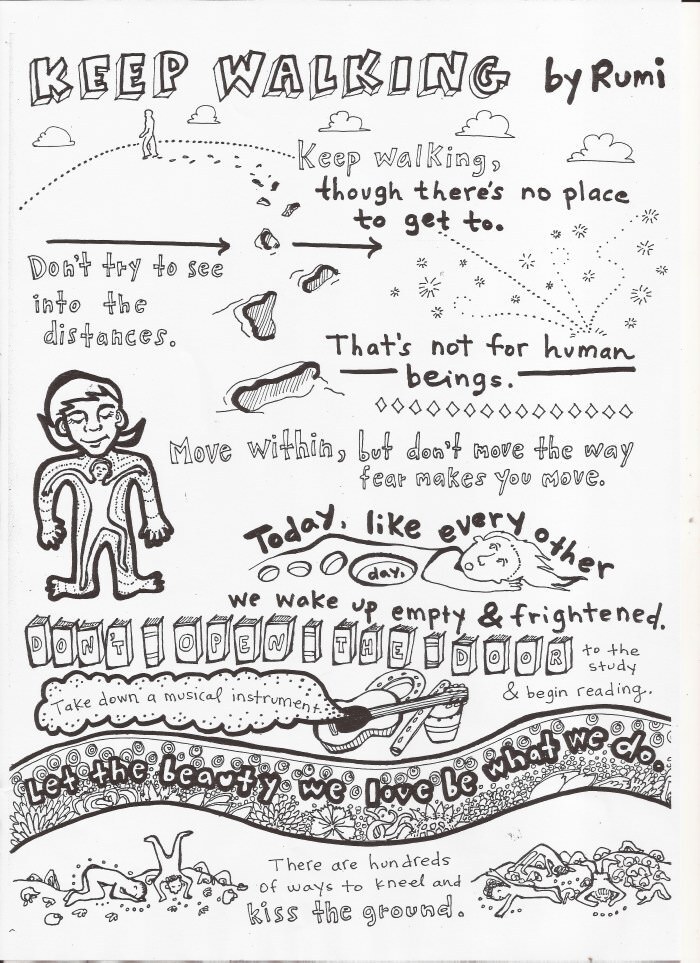 KEEP WALKING by Rumi
Keep walking,
though there's no place
to get to.
Don't try to see
into the
distances.
That's not for human
beings.
Move within, but don't move the way
fear makes you move.
Today, like every other
day,
we wake up empty & frightened.
DON'T OPEN THE DOOR to the
study
& begin reading.
Take down a musical instrument.
Let the beauty we love be what we do.
There are hundreds
of ways to kneel and
kiss the ground.